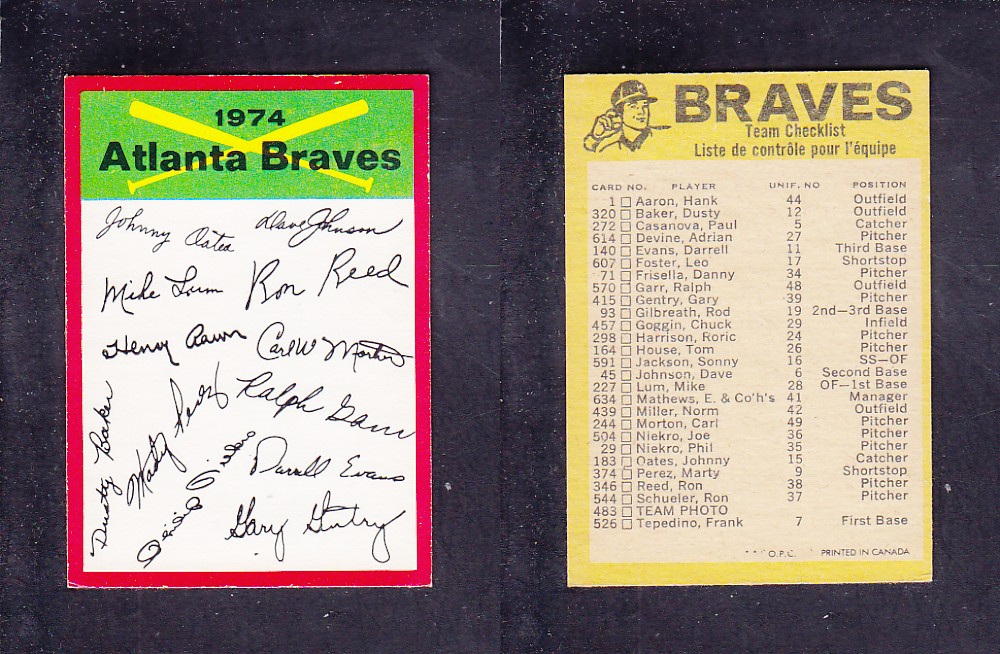 1974
Atlanta Braves
Johnny Oates
Dave Johnson
Mike Lum
Ron Reed
Henry Aaron
Carl W Morton
Ralph Garr
Dusty Baker
Darrell Evans
Gary Gentry
BRAVES
Team Checklist
Liste de contrôle pour l'équipe
CARD NO. PLAYER UNIF. NO POSITION
1 Aaron, Hank 44 Outfield
320 Baker, Dusty 12 Outfield
272 Casanova, Paul 5 Catcher
614 Devine, Adrian 27 Pitcher
140 Evans, Darrell 11 Third Base
607 Foster, Leo 17 Shortstop
71 Frisella, Danny 34 Pitcher
570 Garr, Ralph 48 Outfield
415 Gentry, Gary 39 Pitcher
93 Gilbreath, Rod 19 2nd—3rd Base
457 Goggin, Chuck 29 Infield
298 Harrison, Roric 24 Pitcher
164 House, Tom 26 Pitcher
591 Jackson, Sonny 16 SS—OF
45 Johnson, Dave 6 Second Base
227 Lum, Mike 28 OF—1st Base
634 Mathews, E. & Co'h's 41 Manager
439 Miller, Norm 42 Outfield
244 Morton, Carl 49 Pitcher
504 Niekro, Joe 36 Pitcher
29 Niekro, Phil 35 Pitcher
183 Oates, Johnny 15 Catcher
374 Perez, Marty 9 Shortstop
346 Reed, Ron 38 Pitcher
544 Schueler, Ron 37 Pitcher
483 TEAM PHOTO
526 Tepedino, Frank 7 First Base
O.P.C. PRINTED IN CANADA